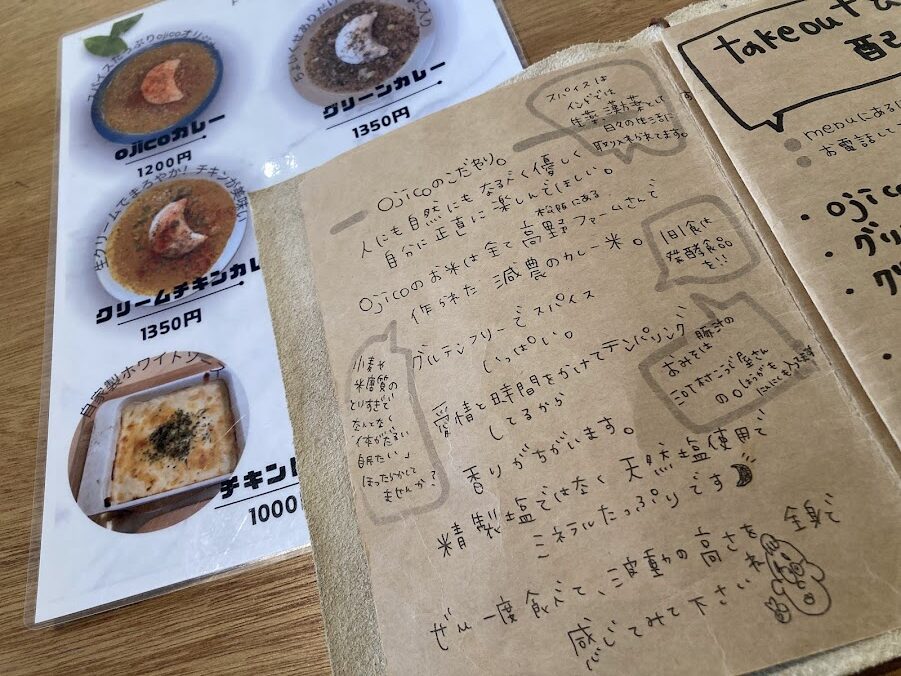 スパイスたっぷりojicoオリジ
ojicoカレー
1200円
グリーンカレー
1350円
生クリームでまろやか！チキンが美味い
クリームチキンカレ
1350円
自家製ホワイトソ
チキンド
1000
スパイスは
インドでは
生薬 漢方薬として
日々の生活に
取り入れられてます。
ojicoのこだわり。
人にも自然にもなるべく優しく
自分に正直に楽しんでほしい。
松阪にある
ojicoのお米は全て高野ファームさんで
作られた 減農のカレー米。
1日1食は
発酵食品
を!!
グルテンフリーでスパイス
いっぱい。
小麦や
米 糖質の
とりすぎで
なんとなく
「体がだるい
重たい」
ほったらかして
ませんか？
豚汁の
おみそは
愛情と時間をかけてテンパリング
してるから
香りがちがいます。
精製塩ではなく 天然塩使用で
ミネラルたっぷりです
ぜひ一度食べて、波動の高さを 全身で
感じてみて下さいね
takeout &
配
menuにある
お電話して
・ojico
・グリ
・ク